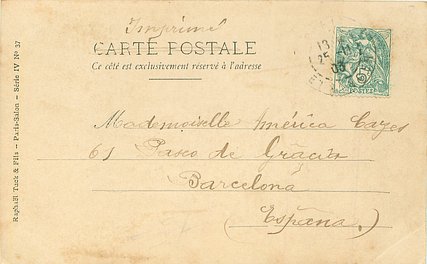 Imprimé
CARTE POSTALE
Ce côté est exclusivement réservé à l'adresse
13
25
03
POSTES
Mademoiselle América Cazes
61 Paseo de Gràcia
Barcelona
(España)
Raphaël Tuck & Fils — Paris-Salon — Série IV Nº 37